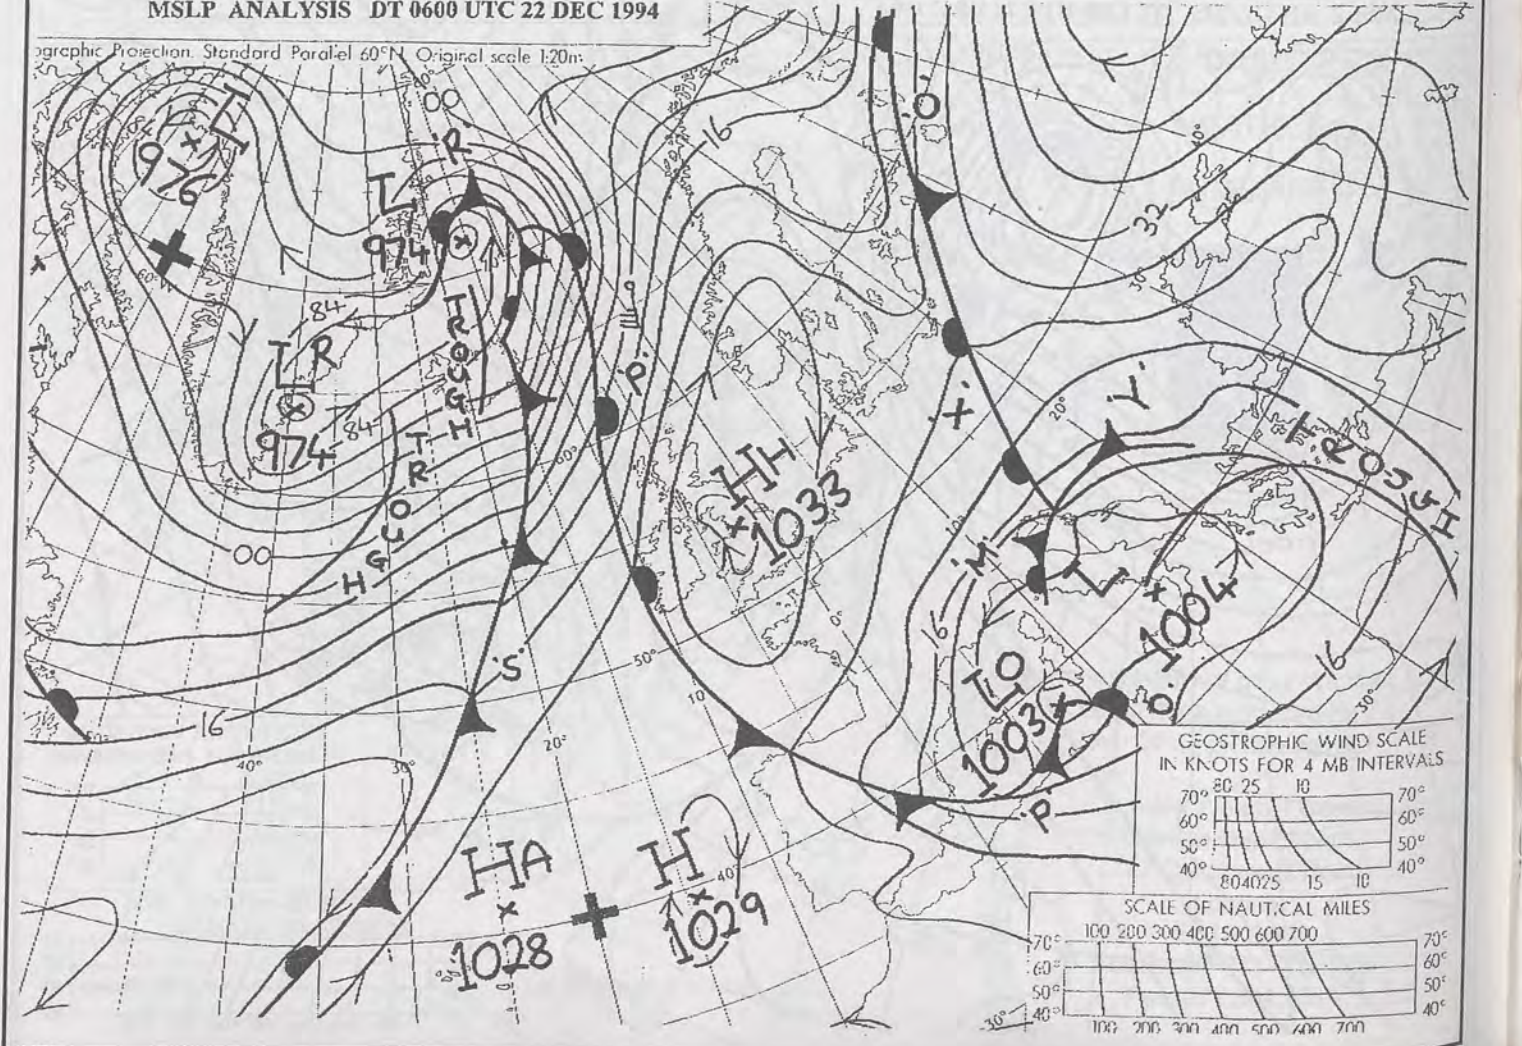 MSLP ANALYSIS DT 0600 UTC 22 DEC 1994
ographic Projection. Standard Parallel 60°N. Original scale 1:20m
L
976
00
'R'
L
974
60°W
84
L R
974
84
TROUGH
TROUGH
00
'P'
16
'O'
10°
32
30°
H H
1033
'X'
'Y'
20°
TROUGH
60°
10°
'M'
L
1004
16
L O
1003
'O'
16
30°
'S'
50°
0°
10
20°
16
50°
40°
30°
'P'
H A
1028
H
1029
40°
GEOSTROPHIC WIND SCALE
IN KNOTS FOR 4 MB INTERVALS
80 25 10
70° 70°
60° 60°
50° 50°
40° 40°
80 40 25 15 10
SCALE OF NAUTICAL MILES
100 200 300 400 500 600 700
70° 70°
60° 60°
50° 50°
40° 40°
100 200 300 400 500 600 700
30°